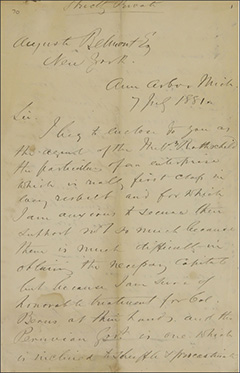 August Belmont Esq
New York.
Ann Arbor Mich.
7 July 1881.
Sir.
I beg to enclose to you as
the agent of the Rothschild
the particulars of an enterprise
which is really first class in
every respect and for which
I am anxious to secure their
support not so much because
there is much difficulty in
obtaining the necessary capital
but because I am sure of
honorable treatment for Col
at their hands, and the
Peruvian is one which
is inclined to